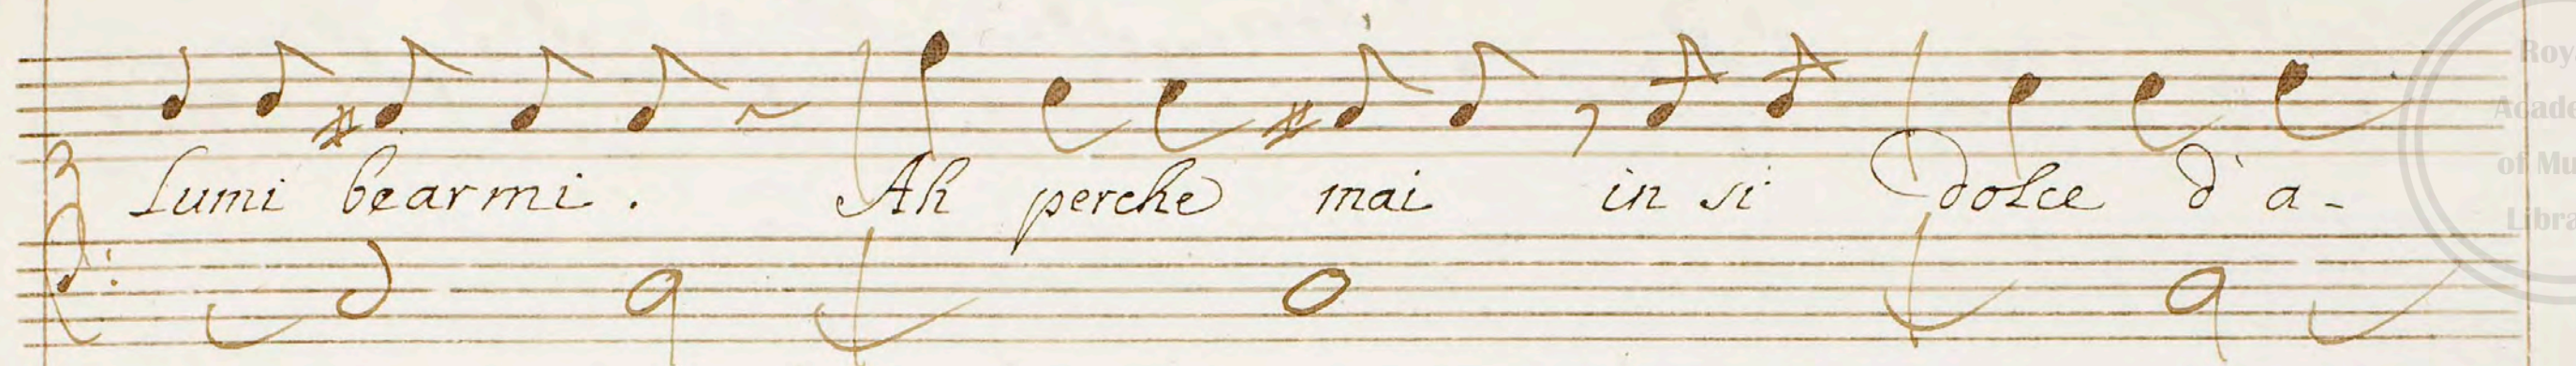 Lumi bearmi. Ah perche mai in si dolce d'a-
Roy
Acade
of Mu
Libra